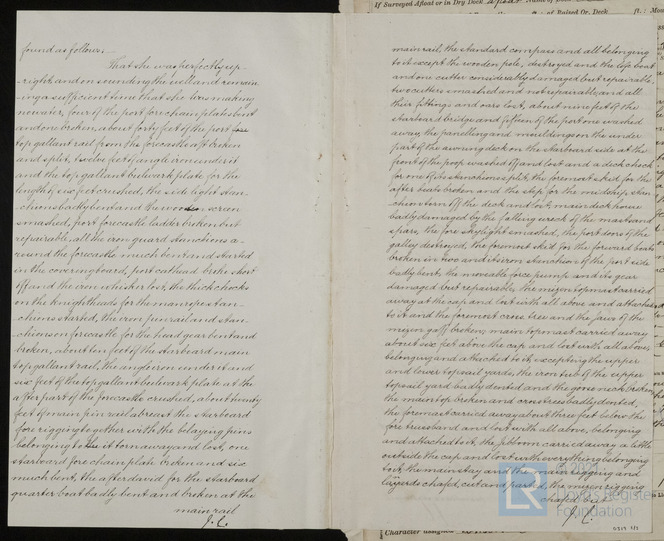 found as follows,
That she was perfectly up-
-right and on sounding the well and remain-
-ing a sufficient time that she was making
no water, four of the port fore chain plates bent
and one broken, about forty feet of the port fore
top gallant rail from the forecastle aft broken
and split, twelve feet of angle iron under it
and the top gallant bulwark plate for the
length of six feet crushed, the side light stan-
-chions badly bent and the wooden screen
smashed, port forecastle ladder broken but
repairable, all the iron guard stanchions a-
-round the forecastle much bent and started
in the covering board, port cathead broke short
off and the iron whisker lost, the thick chocks
on the knightheads for the manrope stan-
-chions started, the iron pinrail and stan-
-chions on forecastle for the head gear bent and
broken, about ten feet of the starboard main
top gallant rail, the angle iron under it and
six feet of the top gallant bulwark plate at the
after part of the forecastle crushed, about twenty
feet of main pin rail abreast the starboard
fore rigging together with the belaying pins
belonging to it torn away and lost, one
starboard fore chain plate broken and six
much bent, the after david for the starboard
quarter boat badly bent and broken at the
main rail
J. C.
main rail, the standard compass and all belonging
to it except the wooden pole, destroyed and the life boat
and one cutter considerably damaged but repairable,
two cutters smashed and not repairable and all
their fittings and oars lost, about nine feet of the
starboard bridge and fifteen of the port one washed
away, the panelling and moulding on the under
part of the awning deck on the starboard side at the
front of the poop washed off and lost and a deck chock
for one of its stanchions split, the foremost skid for the
after boats broken and the step for the midship stan-
chion torn off the deck and lost, main deck house
badly damaged by the falling wreck of the masts and
spars, the fore skylight smashed, the port door of the
galley destroyed, the foremost skid for the forward boats
broken in two and its iron stanchion of the port side
badly bent, the moveable force pump and its gear
damaged but repairable, the mizen topmast carried
away at the cap and lost with all above and attached
to it and the foremost cross tree and the jaws of the
mizen gaff broken, main topmast carried away
about six feet above the cap and lost with all above,
belonging and attached to it, excepting the upper
and lower topsail yards, the iron tub of the upper
topsail yard badly dented and the goose neck broken,
the main top broken and cross trees badly dented,
the foremast carried away about three feet below the
fore truss band and lost with all above, belonging
and attached to it, the jibboom carried away a little
outside the cap and lost with everything belonging
to it, the mainstay and the main rigging and
lanyards chafed, cut and parted, the mizen rigging
chafed but
J. C.
If Surveyed Afloat or in Dry Dock
Character assigned
© 2021
LR
Lloyd's Register
Foundation